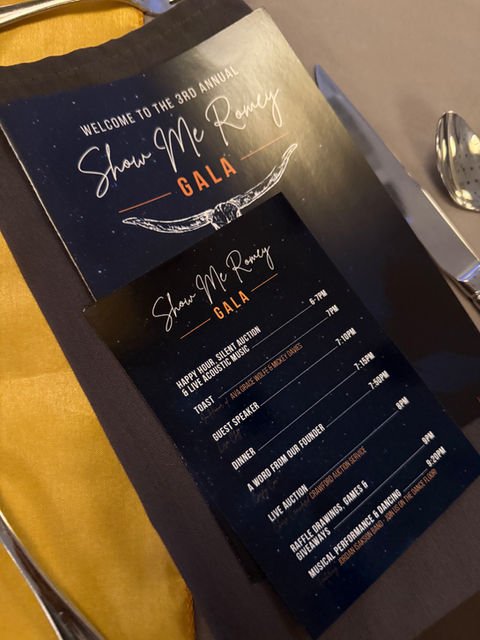 WELCOME TO THE 3RD ANNUAL
Show Me Romey
GALA
Show Me Romey
GALA
HAPPY HOUR, SILENT AUCTION 6-7PM
& LIVE ACOUSTIC MUSIC
AVA GRACE WOLFE & MICKEY DAWES
TOAST 7PM
GUEST SPEAKER 7:10PM
DINNER 7:15PM
A WORD FROM OUR FOUNDER 7:50PM
LIVE AUCTION 8PM
CRAWFORD AUCTION SERVICE
RAFFLE DRAWINGS, GAMES &
GIVEAWAYS 8PM
MUSICAL PERFORMANCE & DANCING 8:30PM
JORDAN ISAKSON BAND - JOIN US ON THE DANCE FLOOR!